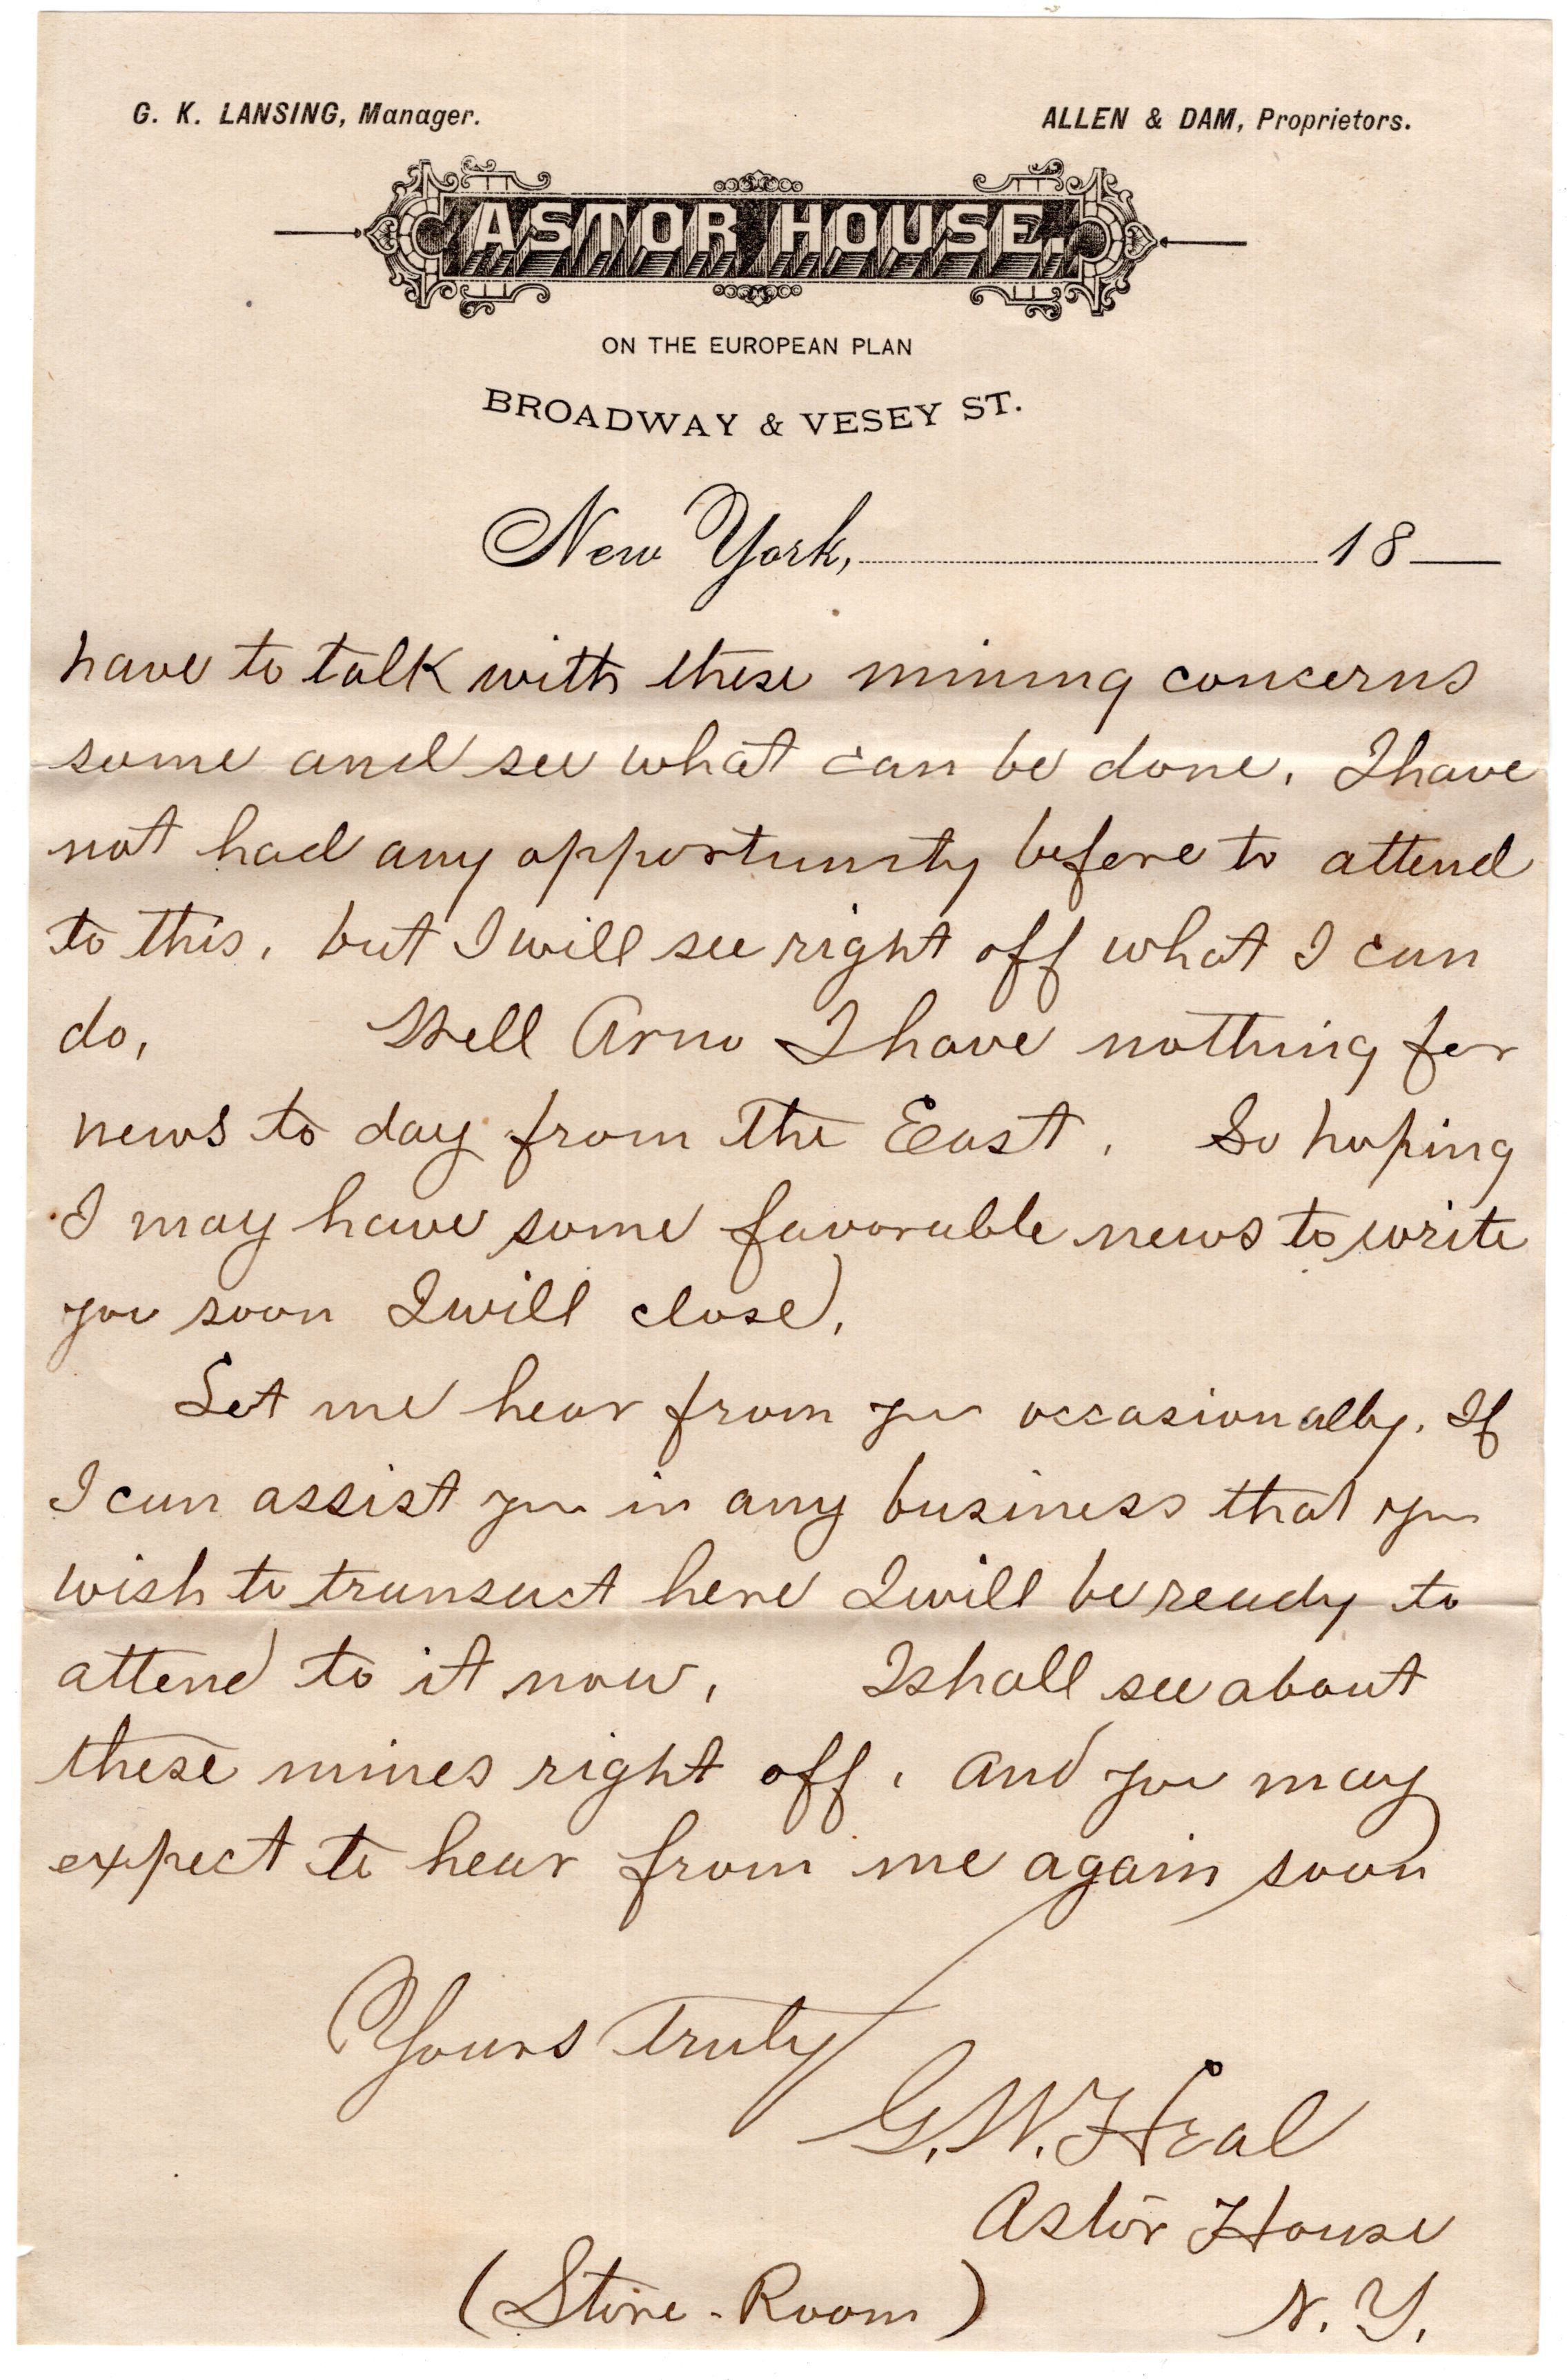 G. K. LANSING, Manager.
ALLEN & DAM, Proprietors.
ASTOR HOUSE.
ON THE EUROPEAN PLAN
BROADWAY & VESEY ST.
New York, 18
have to talk with these mining concerns
some and see what can be done. I have
not had any opportunity before to attend
to this. but I will see right off what I can
do, Well Arno I have nothing for
news to day from the East. So hoping
I may have some favorable news to write
you soon I will close.
Let me hear from you occasionally. If
I can assist you in any business that you
wish to transact here I will be ready to
attend to it now. I shall see about
these mines right off. and you may
expect to hear from me again soon
Yours Truly
G. W. Heal
Astor House
(Store-Room) N. Y.